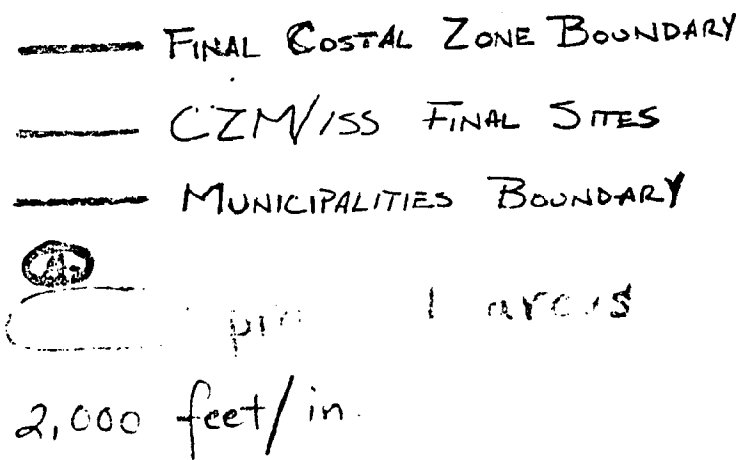 FINAL COSTAL ZONE BOUNDARY
CZM/ISS FINAL SITES
MUNICIPALITIES BOUNDARY
A
areas
2,000 feet/in.